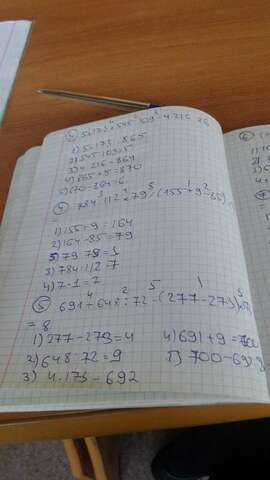 1) 5·173=865
2) 545:109=5
3) 4·216=864
4) 865+5=870
5) 870-864=6
④ 784:112-79:(155+9-85)
=
1) 155+9=164
2) 164-85=79
3) 79:79=1
3) 784:112 7
4) 7-1=7
⑤ 691+648:72-(277-273)·173
= 8
1) 277-273=4 4) 691+9=700
2) 648:72=9 5) 700-692
3) 4·173-692